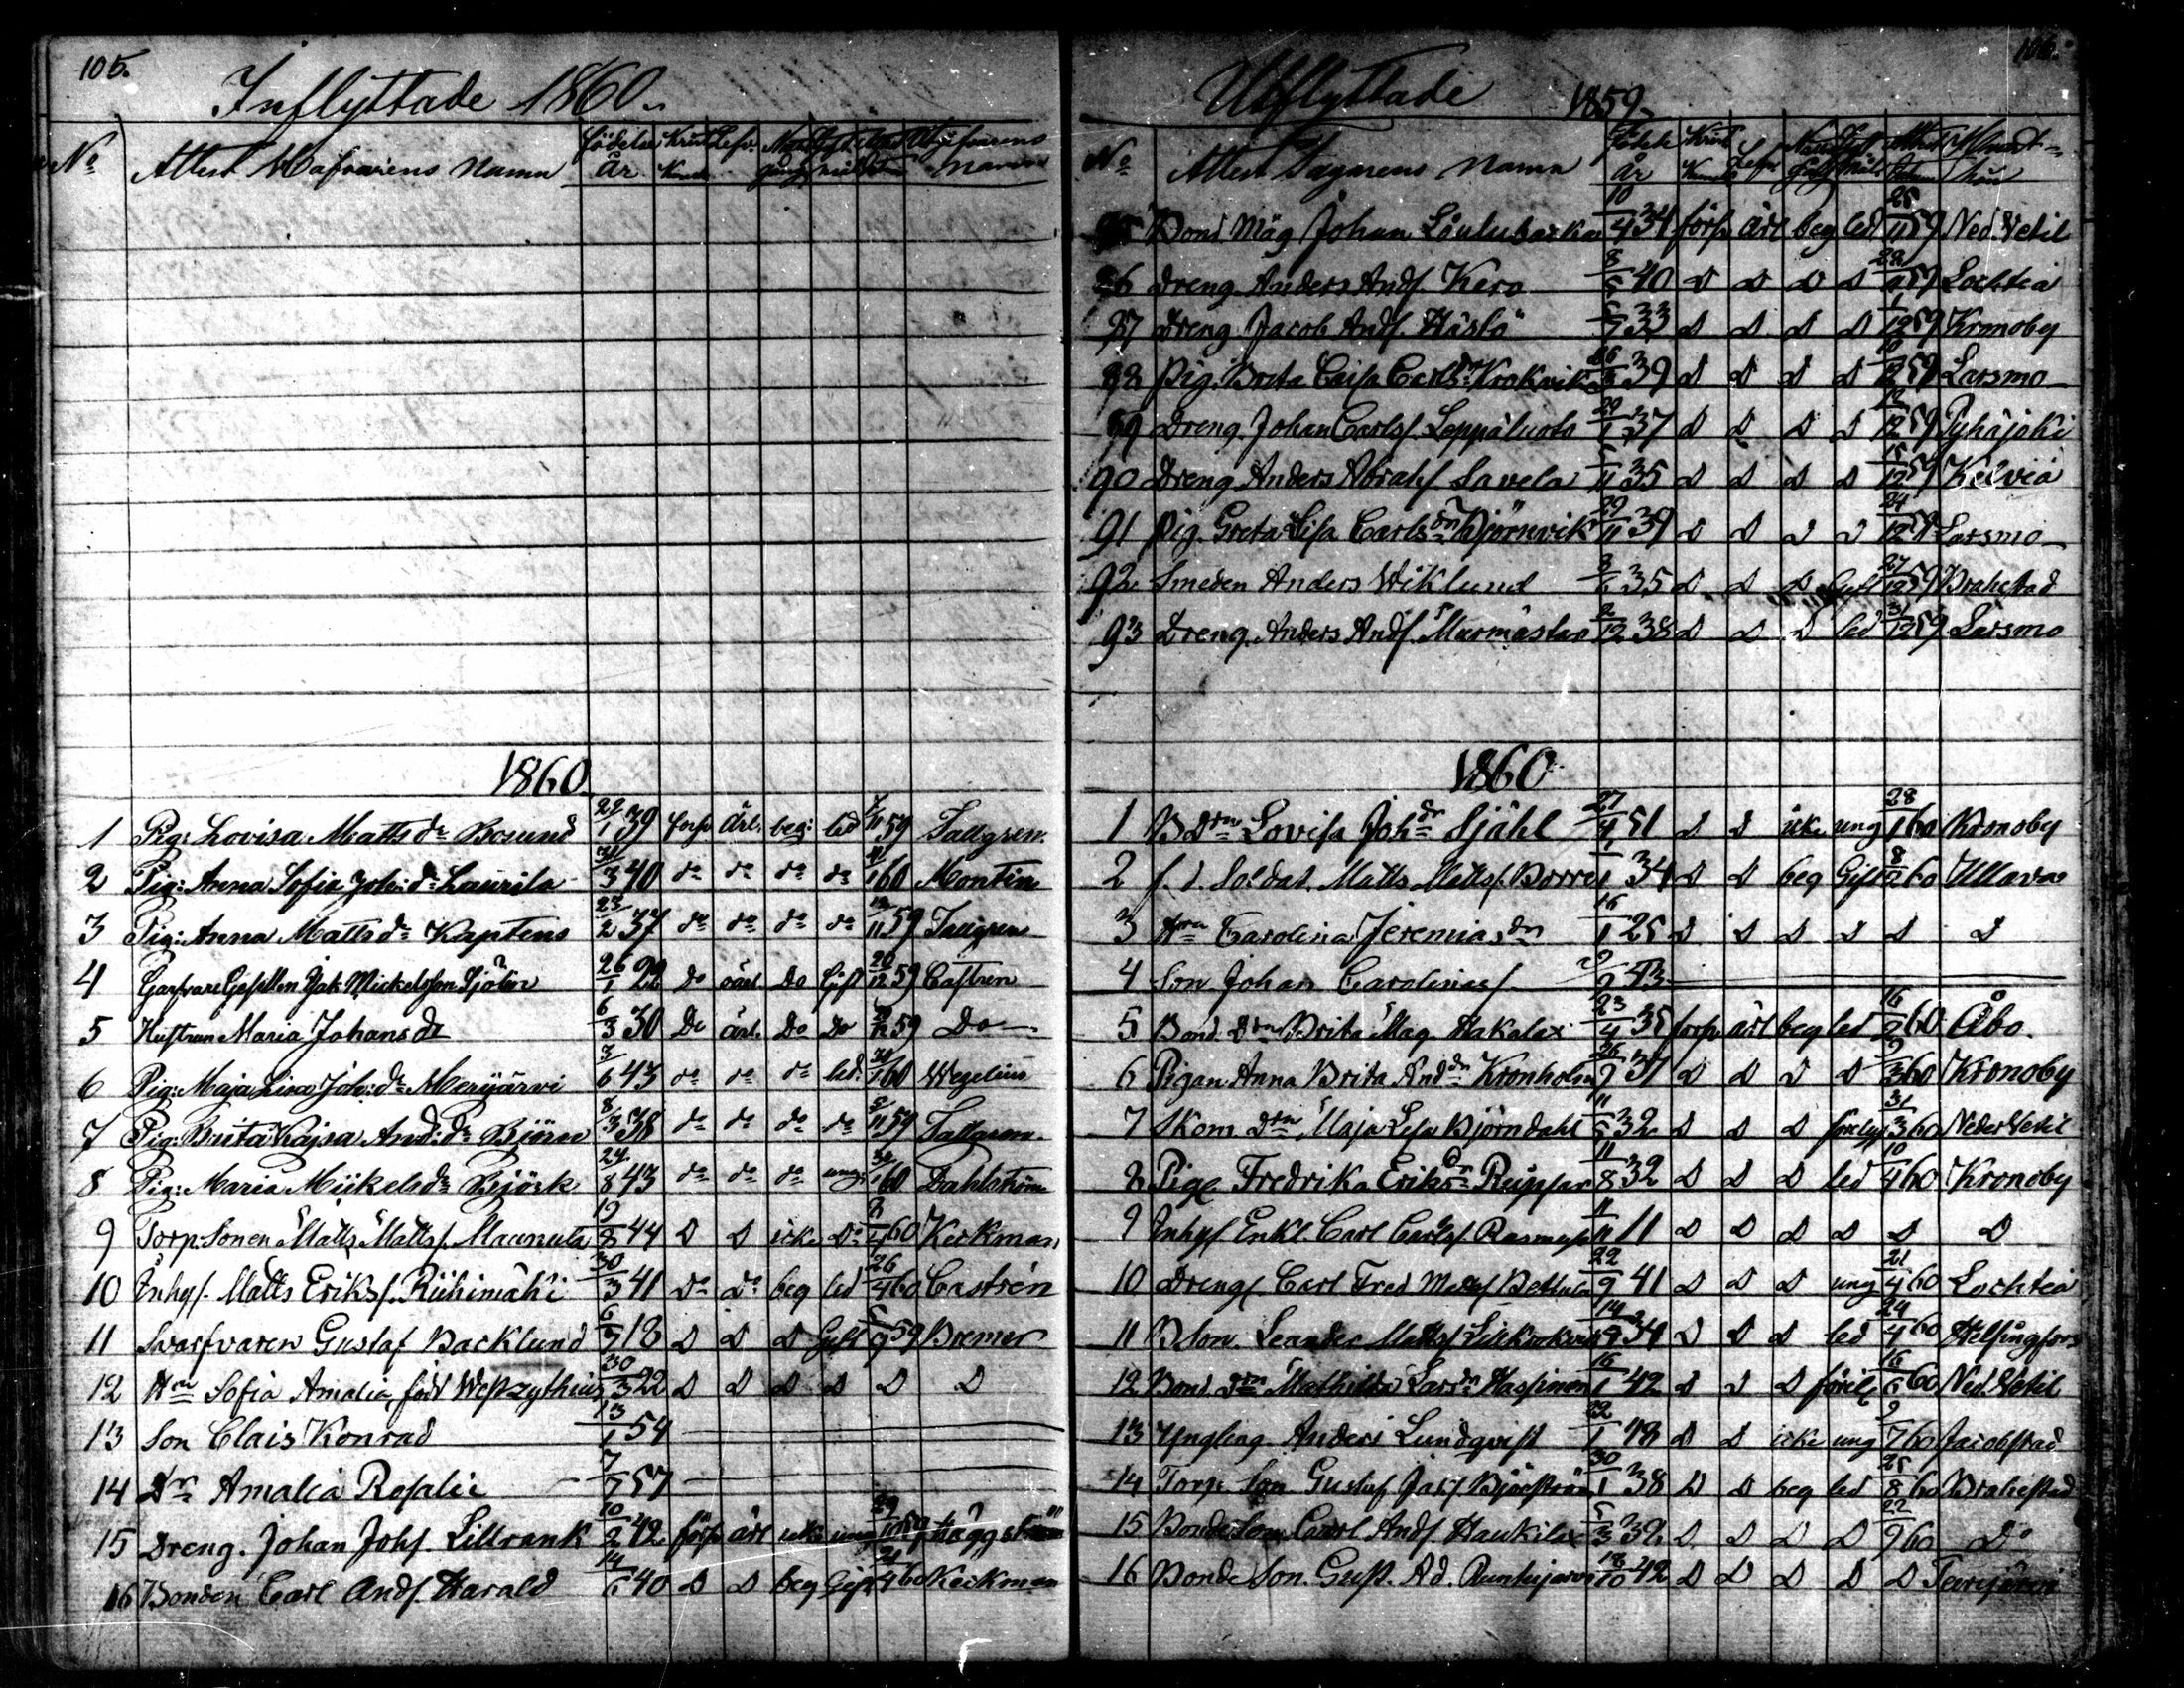 105.
Inflyttade 1860.
No Attest Hafvarens Namn födelse År Krist. Kund. Lefv. Nattv. gång Attest Utgifvarens namn
1860
1 Pig: Lovisa Matts dr Bosund 22/1 39 försv. ärl. beg: led 7/11 59 Tallgren.
2 Pig: Anna Sofia Joh: dr Laurila 31/3 40 do do do do 11/1 60 Montin
3 Pig: Anna Matts dr Kaptens 23/2 37 do do do do 11 59 Tallgren
4 Garfvare Gesellen Jak Mickelsson Sjölin 26/1 22 Do oärl. Do Gift 20/12 59 Castren
5 Hustrun Maria Johans dr 6/3 30 Do ärl. Do Do 20/12 59 Do
6 Pig: Maja Lisa Joh: dr Merijärvi 3/6 43 do do do led. 1 60 Wegelius
7 Pig: Brita Kajsa And: dr Björn 8/3 38 do do do do 11 59 Tallgren.
8 Pig: Maria Mickels dr Björk 24/8 43 do do do ung: 1 60 Dahlström
9 Torp. Sonen Matts Mattss. Maunula 19/8 44 D D icke Do 8/4 60 Keckman
10 Inhys. Matts Erikss. Riihimäki 30/3 41 Do Do beg led 26/4 60 Castrén
11 Svarfvaren Gustaf Backlund 6/9 18 D D D Gift 5/9 59 Bremer
12 Hn Sofia Amalia, född Westzythius 30/3 22 D D D D D D
13 Son Clais Konrad 13/1 54
14 Dr Amalia Rosalie 7/7 57
15 Dreng. Johan Johs. Lillrank 10/2 42 försv ärl icke ung 29/10 59 Häggström
16 Bonden Carl Ands. Harald 14/6 40 D D beg Gift 21/4 60 Keckman
106.
Utflyttade 1859.
No Attest Tagarens Namn Födelse År Krist Kunds Lefv Nattv Gång Attest Datum
Bond Måg Johan Låulubacka 10/4 34 försv ärl beg led 25/11 59 Ned. Vetil
86 Dreng Anders Ands. Kero 8/5 40 D D D D 59 Lochteå
87 Dreng Jacob Ands. Hästö 33 D D D D 1/12 59 Kronoby
88 Pig. Brita Caisa Carls dr Krokvik 39 D D D D 59 Larsmo
89 Dreng. Johan Carlss. Leppäluoto 29/1 37 D D D D 12/12 59 Pyhäjoki
90 Dreng Anders Abrahs. Savela 11 35 D D D D 15/12 59 Kelviå
91 Pig. Greta Lisa Carls dn Björnvik 29/11 39 D D D D 24/12 59 Larsmo
92 Smeden Anders Wiklund 3/6 35 D D D Gift 27/12 59 Brahestad
93 Dreng. Anders Ands. Murmästar 2/12 38 D D D led 31/12 59 Larsmo
1860
1 B Drn Lovisa Joh dr Sjöhl 27/4 51 D D icke ung 28/1 60 Kronoby
2 f. d. Soldat. Matts Mattss. Borre 1 34 D D beg Gift 8/2 60 Ullava
3 Hrn Carolina Jeremias dn 16/1 25 D D D D D D
4 Son Johan Carolinas 9 43
5 Bond. Drn Brita Mag. Hakalax 23/4 35 försv ärl beg led 16/2 60 Åbo.
6 Pigan Anna Brita And dr Kronholm 26/9 37 D D D D 9/3 60 Kronoby
7 Skom. Drn Maja Lisa Björndahl 11/5 32 D D D 31/3 60 Neder Vetil
8 Piga Fredrika Eriks dn Ruppar 11/8 32 D D D led 10/4 60 Kronoby
9 Inhys Enkl. Carl Carlss. Rasmus 11/11 11 D D D D D D
10 Drengs. Carl Fred Matss Bettula 22/9 41 D D D ung 21/4 60 Lochteå
11 B Son. Leander Mattss Lillkrokvik 14/9 34 D D D led 24/4 60 Helsingfors
12 Bond Drn Mathilda Lars dn Hassinen 16/1 42 D D D 16/6 60 Ned. Vetil
13 Yngling Anders Lundqvist 22/1 43 D D icke ung 9/7 60 Jacobstad
14 Torp. Son Gustaf Jacs. Björkström 30/1 38 D D beg led 25/8 60 Brahestad
15 Bonde Son Carl Ands. Haukilax 5/3 39 D D D D 22/9 60 Do
16 Bonde Son. Gust. Ad. 18/10 42 D D D D D Terijärvi